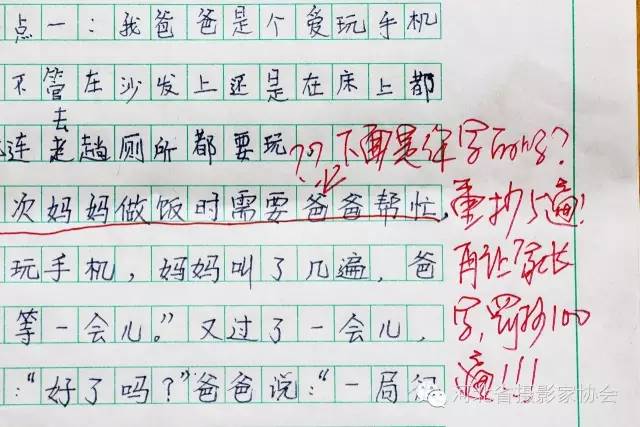 点一：我爸爸是个爱玩手机
不管在沙发上还是在床上都
连去趟厕所都要玩
次妈妈做饭时需要爸爸帮忙，
玩手机，妈妈叫了几遍，爸
等一会儿。”又过了一会儿，
：“好了吗？”爸爸说：“一局
？？下面是你写的吗？
重抄5遍！
再让家长
写，罚抄100
遍！！！
河北省摄影家协会